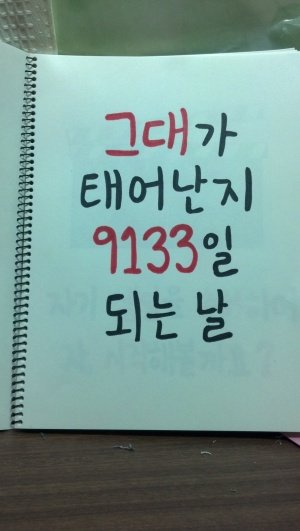 그대가
태어난지
9133일
되는 날